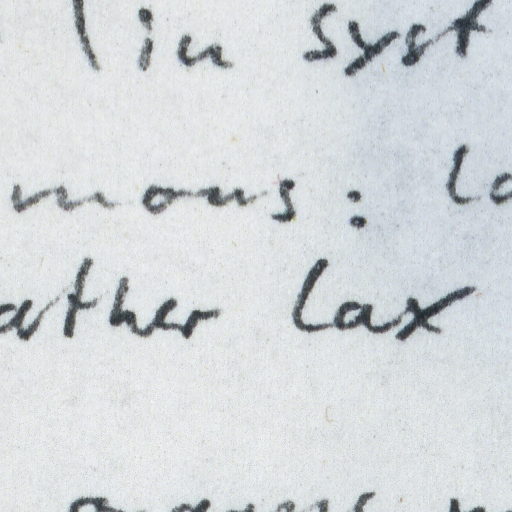 (in syst
mous: la
ather lax